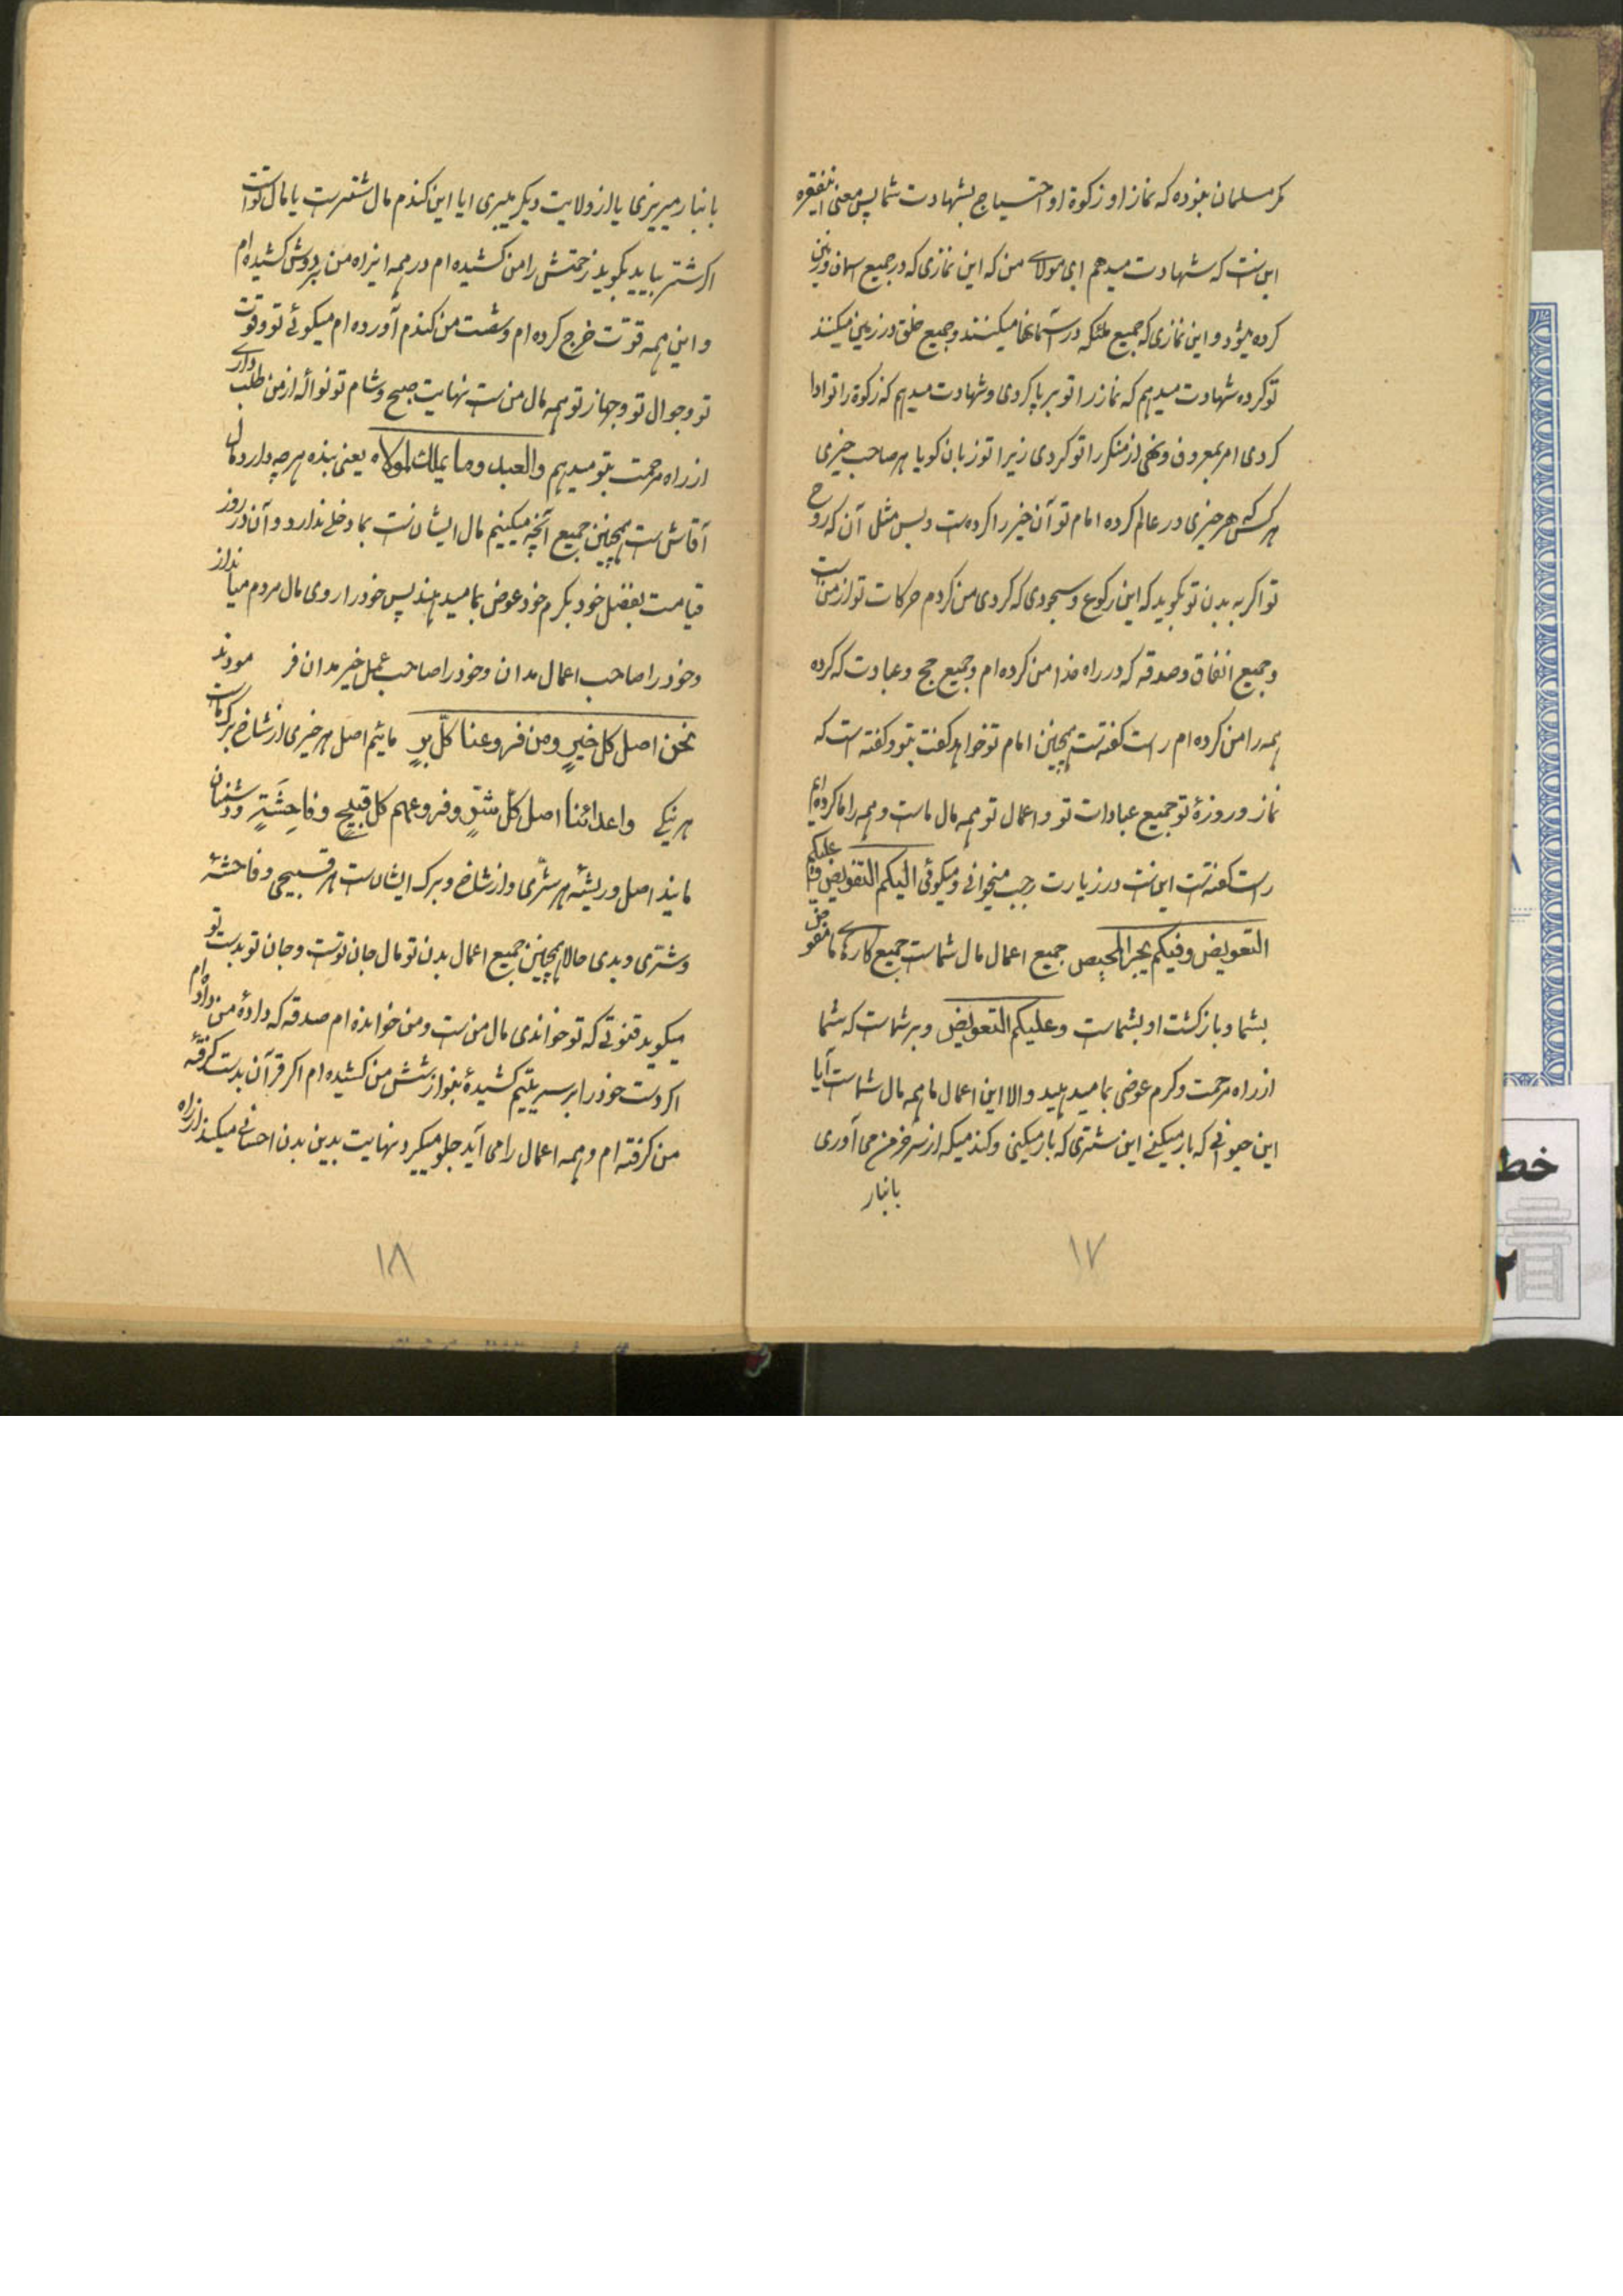 مگر مسلمان نبوده که نماز او زکوة او احتیاج بشهادت شما پس معنی این فقره
این ست که شهادت میدهم ای مولای من که این نمازی که در جمیع اسمان و زمین
کرده میشود و این نمازی که جمیع ملئکه در آسمانها میکنند و جمیع خلق در زمین میکنند
تو کرده شهادت میدهم که نماز را تو برپا کردی و شهادت میدهم که زکوة را تو ادا
کردی امر بمعروف و نهی از منکر را تو کردی زیرا تو زبان گویا هر صاحب خیری
هر کس هر خیری در عالم کرده امام تو آن خیر را کرده ست و بس مثل آن که روح
تو اکر به بدن تو بگوید که این رکوع و سجودی که کردی من کردم حرکات تو از من ست
و جمیع انفاق و صدقه که در راه خدا من کرده ام و جمیع حج و عبادت که کرده
همه را من کرده ام راست کفته ست همچنین امام تو خواهد کفت بتو و کفته است که
نماز و روزهٔ تو جمیع عبادات تو و اعمال تو همه مال ماست و همه را ما کرده ایم
راست کفته ست این ست در زیارت رجب میخوانی و میکوئی الیکم التفویض و علیکم
التعویض وفیکم یجبر المحیص جمیع اعمال مال شماست جمیع کارهای ما مفوض
بشما و بازکشت او بشماست وعلیکم التعویض و بر شماست که شما
از راه مرحمت و کرم عوضی بما میدهید والا این اعمال ما همه مال شماست آیا
این حیوانی که بار میکنی این شتری که بار میکنی و کندمیکه از سر خرمن می آوری
بانبار
۱۷
بانبار میریزی یا از ولایت دیکر میبری ایا این کندم مال شترست یا مال تو است
اکر شتر بیاید بکوید زحمتش را من کشیده ام در همه این راه من بر دوش کشیده ام
و این همه قوّت خرج کرده ام و شصت من کندم آورده ام میکوئی تو و قوت
تو و جوال تو و جهاز تو همه مال من ست نهایت صبح و شام تو نوالهٔ از من طلب داری
از راه مرحمت بتو میدهم والعبد وما یملك لمولاه یعنی بنده هرچه دارد مال
آقاش ست همچنین جمیع آنچه میکنیم مال ایشان ست بما دخلی ندارد و آن در روز
قیامت بفضل خود بکرم خود عوض بما میدهند پس خود را روی مال مردم میانداز
و خود را صاحب اعمال مدان و خود را صاحب عمل خیر مدان فر مودند
نحن اصل کل خیرٍ ومن فروعنا کلّ برٍ مائیم اصل هر خیری از شاخ برک ماست
هر نیکی واعدائنا اصل کلّ شرٍّ وفروعهم کل قبیحٍ وفاحِشَةٍ و دشمنان
مایند اصل و ریشهٔ هر شرّی و از شاخ و برک ایشان ست هر قبیحی و فاحشهٔ
و شرّی و بدی حالا همچنین جمیع اعمال بدن تو مال جان تو ست و جان تو بدست تو
میکوید قنوتی که تو خواندی مال من ست و من خوانده ام صدقه که دادهٔ من داده ام
اکر دست خود را بر سر یتیم کشیدهٔ بنوازشش من کشیده ام اکر قرآن بدست کرفتهٔ
من کرفته ام و همه اعمال را می آید جلو میکیرد نهایت بدین بدن احسانی میکند از راه
۱۸
خط
۲